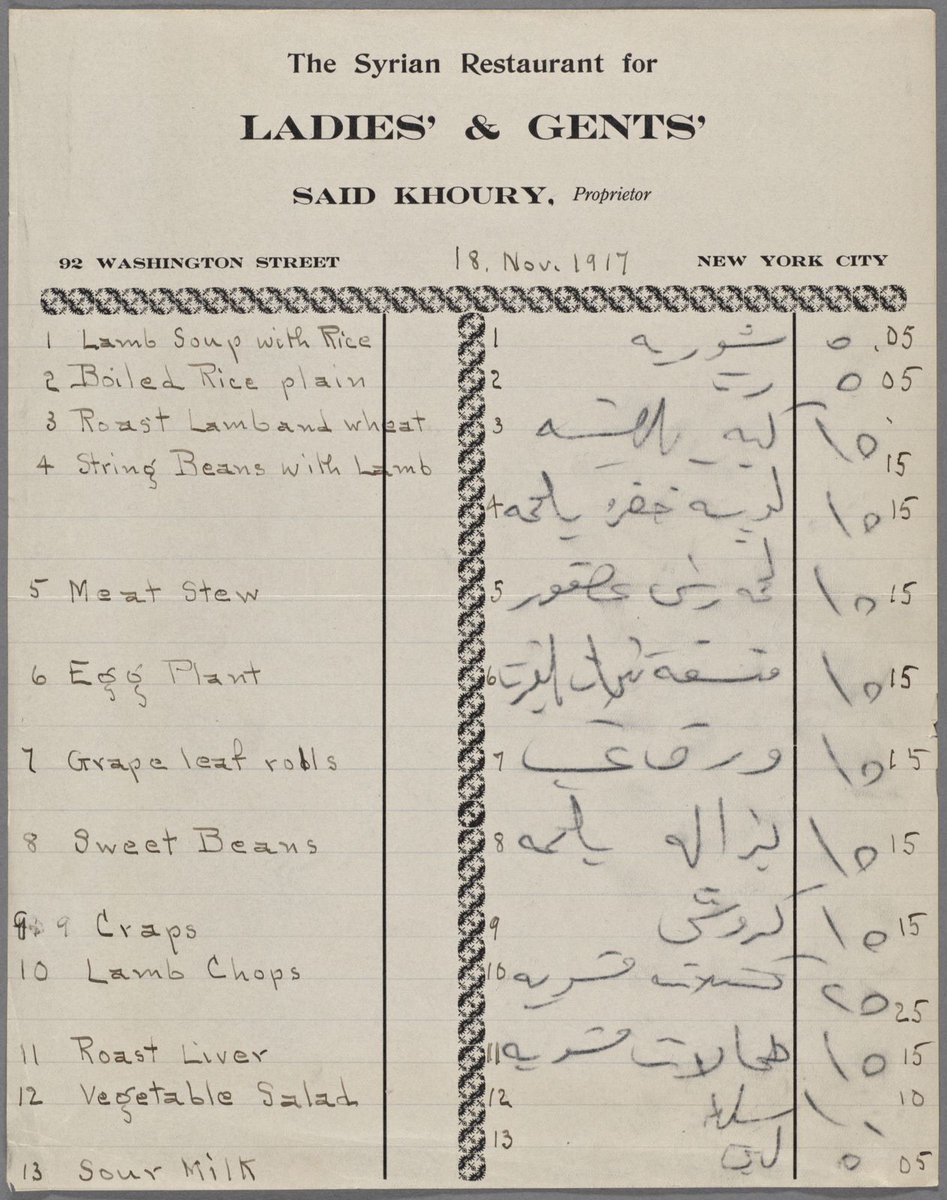 The Syrian Restaurant for
LADIES' & GENTS'
SAID KHOURY, Proprietor
92 WASHINGTON STREET 18. Nov. 1917 NEW YORK CITY
1 Lamb Soup with Rice 1 شوربه ٥ .05
2 Boiled Rice plain 2 ٥ 05
3 Roast Lamb and wheat 3 كبه ١٥ 15
4 String Beans with Lamb
4 لوبيه خضره بلحمه ١٥ 15
5 Meat Stew 5 ١٥ 15
6 Egg Plant 6 ١٥ 15
7 Grape leaf rolls 7 ورق ١٥ 15
8 Sweet Beans 8 بزاله بلحمه ١٥ 15
9 9 Craps 9 كروش ١٥ 15
10 Lamb Chops 10 مشويه ٢٥ 25
11 Roast Liver 11 مشويه ١٥ 15
12 Vegetable Salad 12 سلطه ١٠ 10
13 Sour Milk 13 لبن ٥ 05